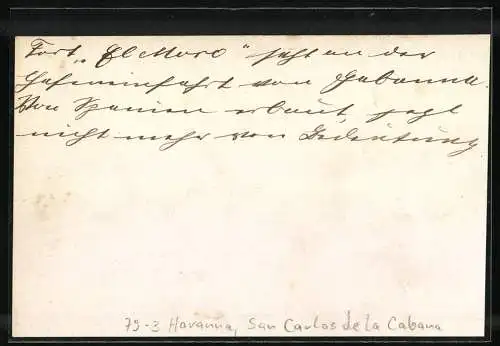 Fort „El Morro“ liegt an der
Hafeneinfahrt von Habanna.
Von Spanien erbaut, jetzt
nicht mehr von Bedeutung
79-3 Havanna, San Carlos de la Cabana